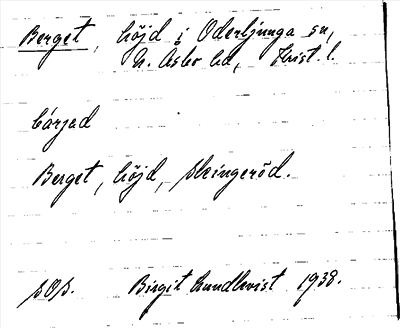 Berget, höjd i Oderljunga sn,
N. Åsbo hd, Krist. l.
bárjed
Berget, höjd, Skingeröd.
SOS. Birgit Lundkvist 1938.